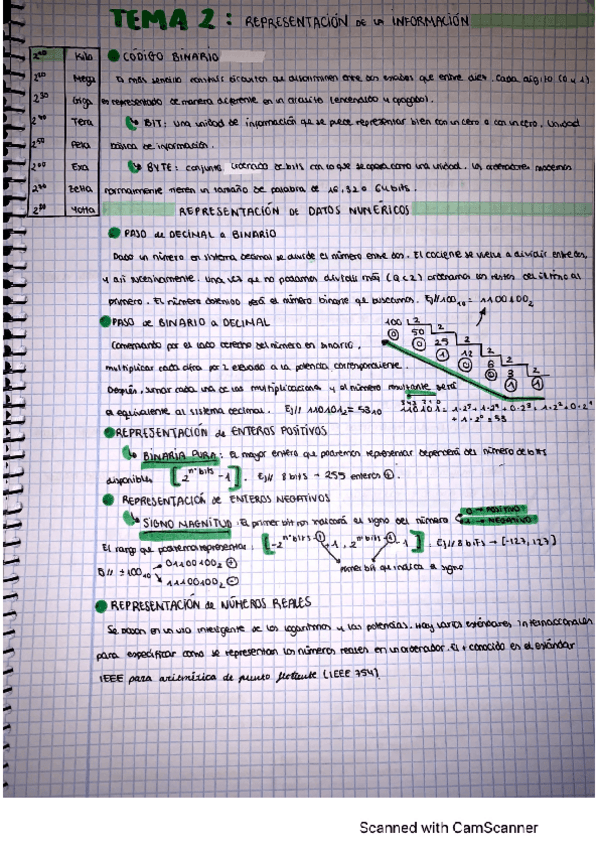 TEMA 2: REPRESENTACIÓN DE LA INFORMACIÓN
2^10 Kilo
2^20 Mega
2^30 Giga
2^40 Tera
2^50 Peta
Exa
Zetta
Yotta
CÓDIGO BINARIO
Es más sencillo construir circuitos que discriminen entre dos estados que entre diez. Cada dígito (0 y 1)
es representado de manera diferente en un circuito (encendido y apagado).
BIT: una unidad de información que se puede representar bien con un cero o con un cero. Unidad
básica de información.
BYTE: conjunto ordenado de bits con lo que se opera como una unidad. Los ordenadores modernos
normalmente tienen un tamaño de palabra de 16, 32 o 64 bits.
REPRESENTACIÓN DE DATOS NUMÉRICOS
PASO de DECIMAL a BINARIO
Dado un número en sistema decimal se divide el número entre dos. El cociente se vuelve a dividir entre dos,
y así sucesivamente. Una vez que no podamos dividir más (Q<2) ordenamos los restos del último al
primero. El número obtenido será el número binario que buscamos. Ej// 100₁₀ = 1100100₂
PASO de BINARIO a DECIMAL
Comenzando por el lado derecho del número en binario,
multiplicar cada cifra por 2 elevado a la potencia correspondiente.
Después, sumar cada una de las multiplicaciones y el número resultante será
el equivalente al sistema decimal. Ej// 110101₂ = 53₁₀
100 2
0 50 2
0 25 2
1 12 2
0 6 2
0 3 2
1 1
110101 = 1·2^5 + 1·2^4 + 0·2^3 + 1·2^2 + 0·2^1
+ 1·2^0 = 53
REPRESENTACIÓN de ENTEROS POSITIVOS
BINARIA PURA: El mayor entero que podremos representar dependerá del número de bits
disponibles [2^nºbits - 1]. Ej// 8 bits → 255 enteros +.
REPRESENTACIÓN de ENTEROS NEGATIVOS
SIGNO MAGNITUD: El primer bit nos indicará el signo del número 0 → POSITIVO
1 → NEGATIVO
El rango que podremos representar: [-2^nºbits-1 + 1, 2^nºbits-1 - 1]. Ej// 8 bits → [-127, 127]
Ej// ±100₁₀ 01100100₂ +
11100100₂ -
primer bit que indica el signo
REPRESENTACIÓN de NÚMEROS REALES
Se basan en un uso inteligente de los logaritmos y las potencias. Hay varios estándares internacionales
para especificar como se representan los números reales en un ordenador. El + conocido es el estándar
IEEE para aritmética de punto flotante (IEEE 754)
Scanned with CamScanner